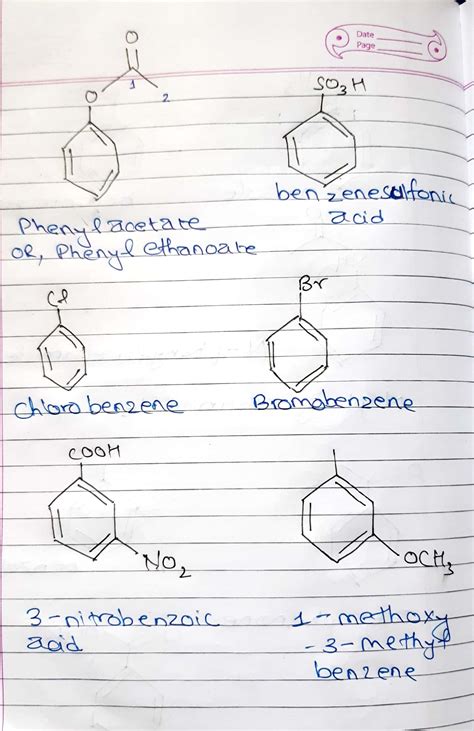 Date
Page
O
O
1
2
SO3H
Phenyl acetate
or, Phenyl ethanoate
benzenesulfonic
acid
Cl
Br
Chlorobenzene
Bromobenzene
COOH
NO2
OCH3
3-nitrobenzoic
acid
1-methoxy
-3-methyl
benzene